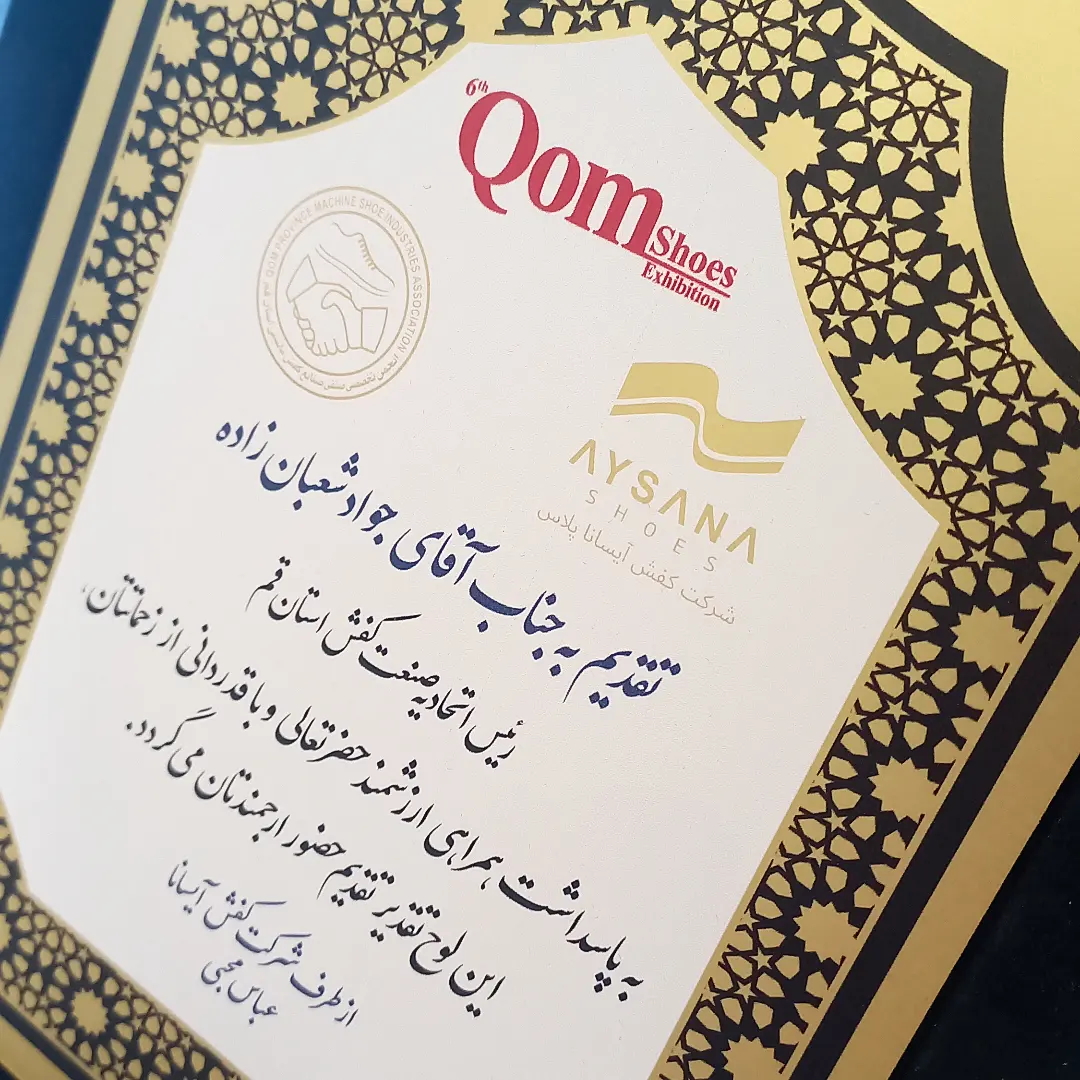 6th
Qom
Shoes
Exhibition
QOM PROVINCE MACHINE SHOE INDUSTRIES ASSOCIATION
انجمن تخصصی صنفی صنایع کفش ماشینی
AYSANA
SHOES
شرکت کفش آیسانا پلاس
تقدیم به جناب آقای جواد شعبان زاده
رئیس اتحادیه صنعت کفش استان قم
به پاسداشت همراهی ارزشمند حضرتعالی و با قدردانی از زحماتتان،
این لوح تقدیر تقدیم حضور ارجمندتان می گردد.
از طرف شرکت کفش آیسانا
عباس محبی